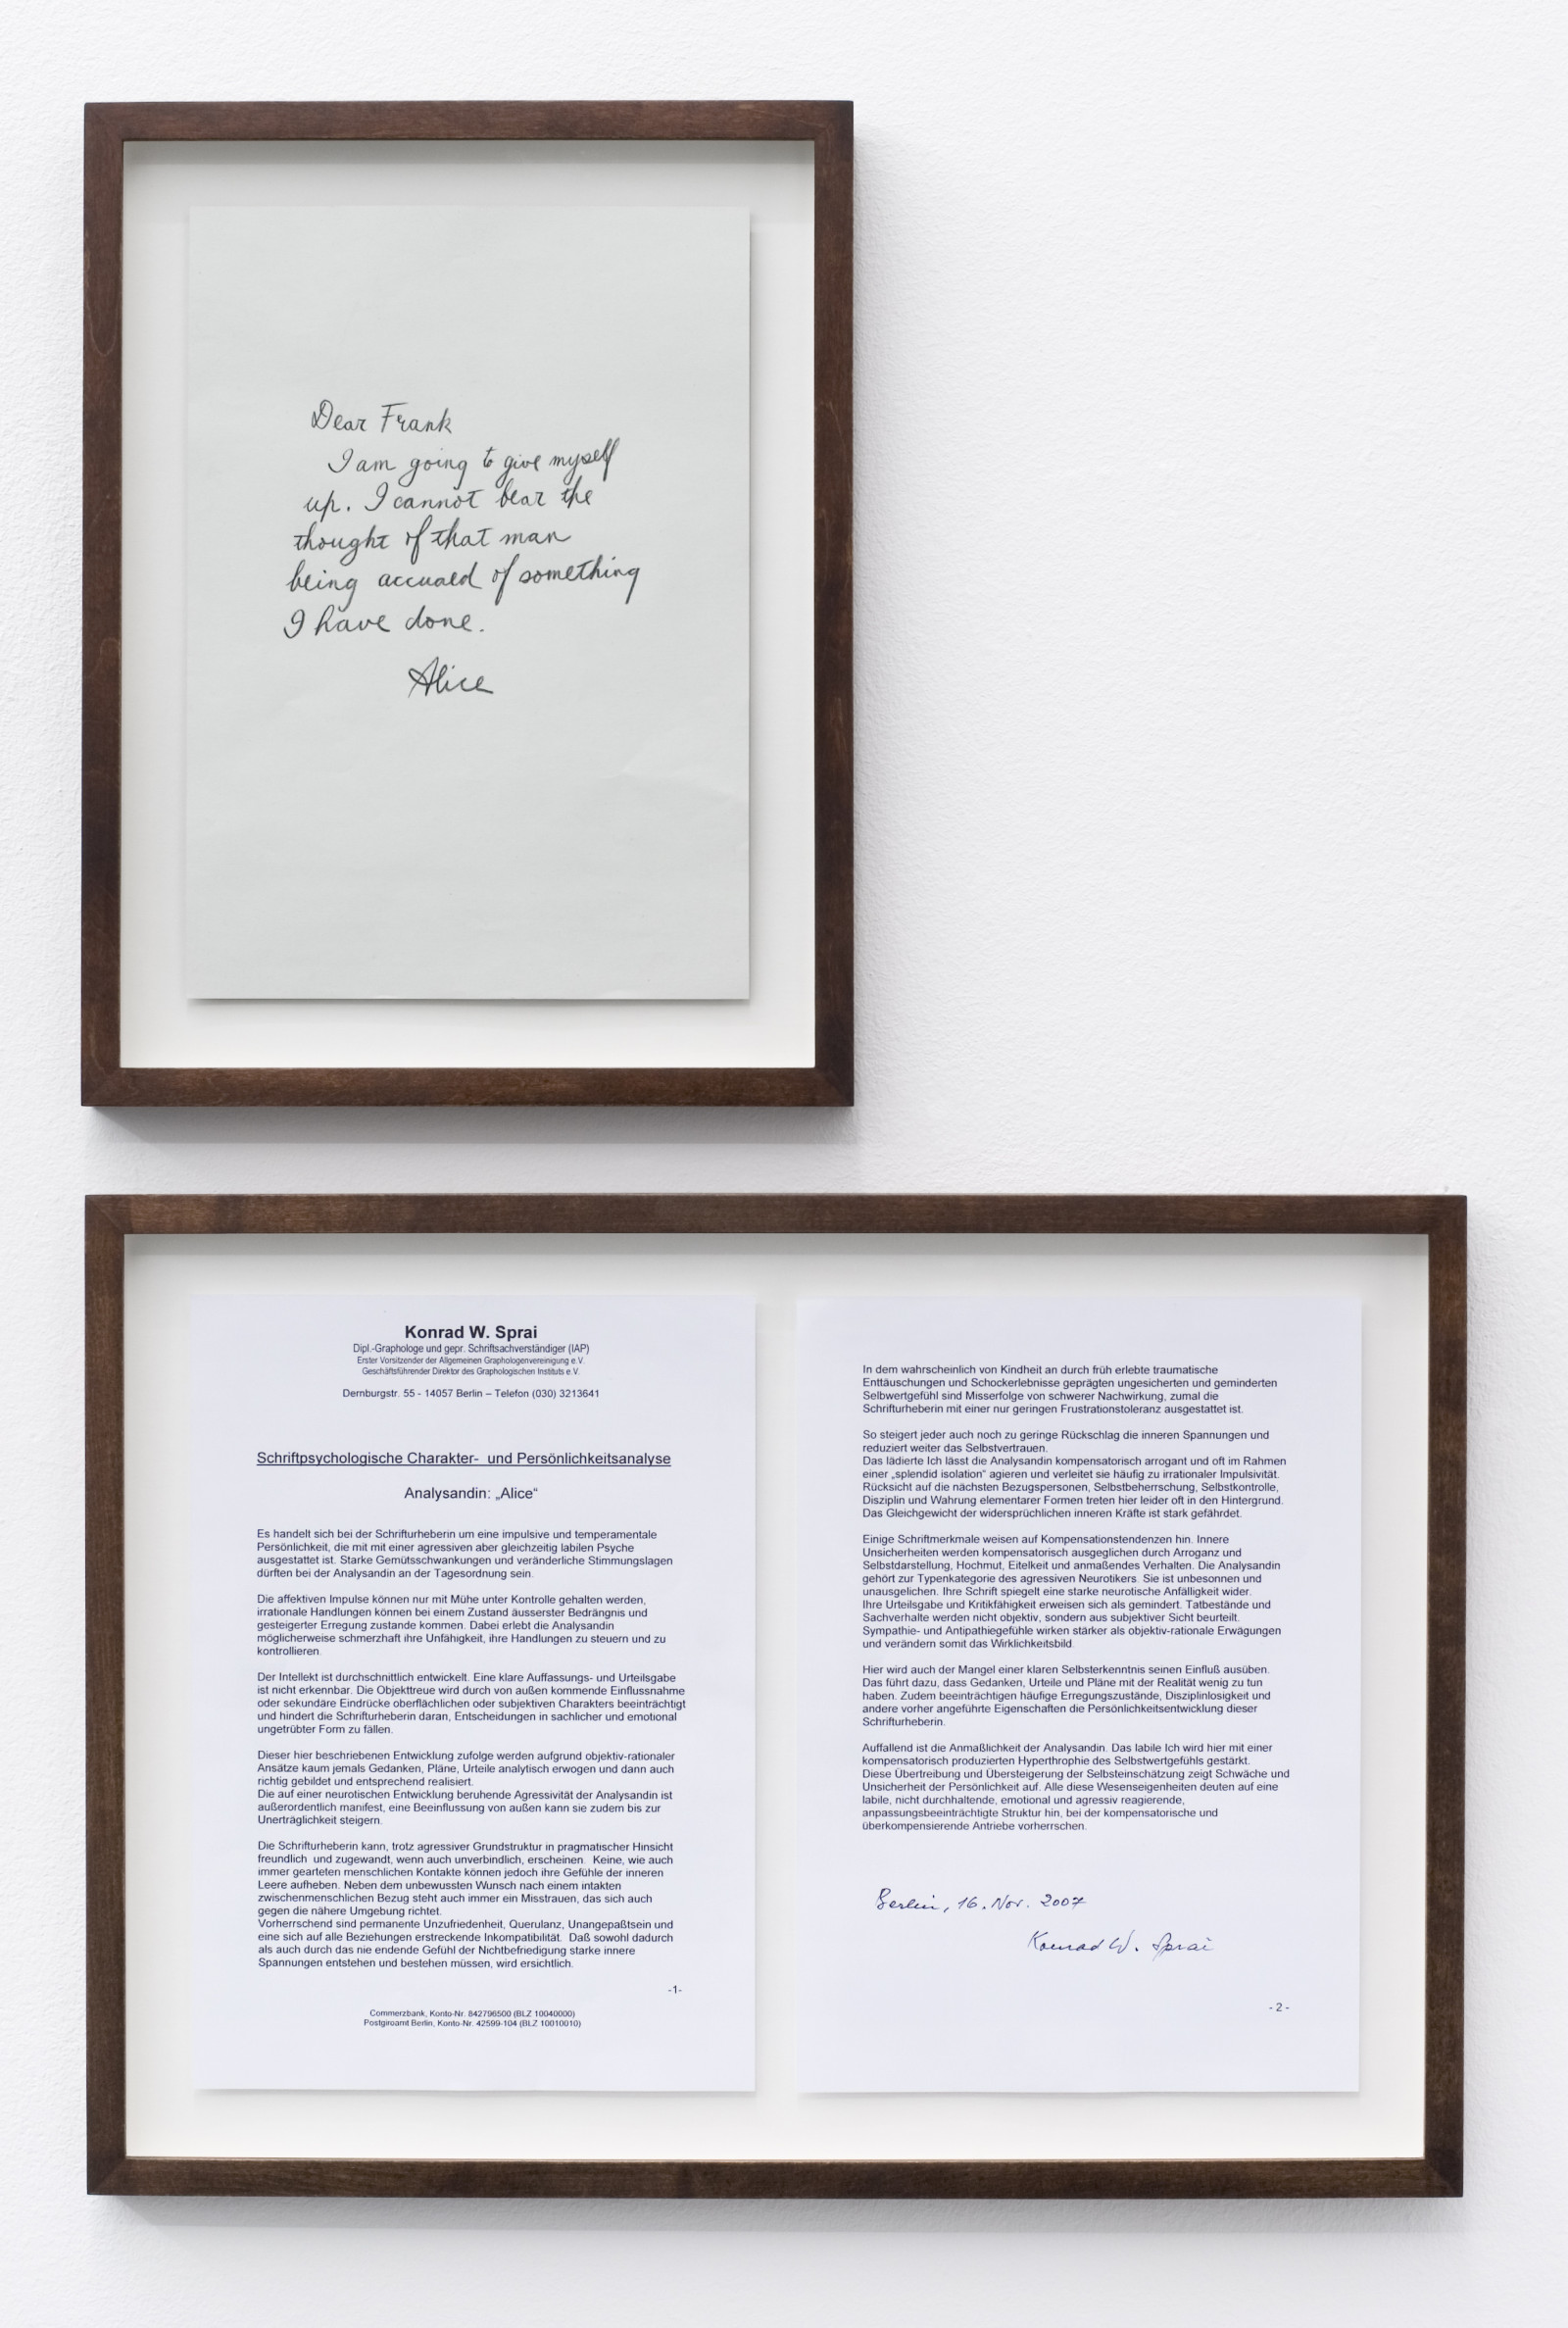 Dear Frank
I am going to give myself
up. I cannot bear the
thought of that man
being accused of something
I have done.
Alice
Konrad W. Sprai
Dipl.-Graphologe und gepr. Schriftsachverständiger (IAP)
Erster Vorsitzender der Allgemeinen Graphologenvereinigung e.V.
Geschäftsführender Direktor des Graphologischen Instituts e.V.
Dernburgstr. 55 - 14057 Berlin – Telefon (030) 3213641
Schriftpsychologische Charakter- und Persönlichkeitsanalyse
Analysandin: „Alice“
Es handelt sich bei der Schrifturheberin um eine impulsive und temperamentale
Persönlichkeit, die mit mit einer agressiven aber gleichzeitig labilen Psyche
ausgestattet ist. Starke Gemütsschwankungen und veränderliche Stimmungslagen
dürften bei der Analysandin an der Tagesordnung sein.
Die affektiven Impulse können nur mit Mühe unter Kontrolle gehalten werden,
irrationale Handlungen können bei einem Zustand äusserster Bedrängnis und
gesteigerter Erregung zustande kommen. Dabei erlebt die Analysandin
möglicherweise schmerzhaft ihre Unfähigkeit, ihre Handlungen zu steuern und zu
kontrollieren.
Der Intellekt ist durchschnittlich entwickelt. Eine klare Auffassungs- und Urteilsgabe
ist nicht erkennbar. Die Objekttreue wird durch von außen kommende Einflussnahme
oder sekundäre Eindrücke oberflächlichen oder subjektiven Charakters beeinträchtigt
und hindert die Schrifturheberin daran, Entscheidungen in sachlicher und emotional
ungetrübter Form zu fällen.
Dieser hier beschriebenen Entwicklung zufolge werden aufgrund objektiv-rationaler
Ansätze kaum jemals Gedanken, Pläne, Urteile analytisch erwogen und dann auch
richtig gebildet und entsprechend realisiert.
Die auf einer neurotischen Entwicklung beruhende Agressivität der Analysandin ist
außerordentlich manifest, eine Beeinflussung von außen kann sie zudem bis zur
Unerträglichkeit steigern.
Die Schrifturheberin kann, trotz agressiver Grundstruktur in pragmatischer Hinsicht
freundlich und zugewandt, wenn auch unverbindlich, erscheinen. Keine, wie auch
immer gearteten menschlichen Kontakte können jedoch ihre Gefühle der inneren
Leere aufheben. Neben dem unbewussten Wunsch nach einem intakten
zwischenmenschlichen Bezug steht auch immer ein Misstrauen, das sich auch
gegen die nähere Umgebung richtet.
Vorherrschend sind permanente Unzufriedenheit, Querulanz, Unangepaßtsein und
eine sich auf alle Beziehungen erstreckende Inkompatibilität. Daß sowohl dadurch
als auch durch das nie endende Gefühl der Nichtbefriedigung starke innere
Spannungen entstehen und bestehen müssen, wird ersichtlich.
-1-
Commerzbank, Konto-Nr. 842796500 (BLZ 10040000)
Postgiroamt Berlin, Konto-Nr. 42599-104 (BLZ 10010010)
In dem wahrscheinlich von Kindheit an durch früh erlebte traumatische
Enttäuschungen und Schockerlebnisse geprägten ungesicherten und geminderten
Selbwertgefühl sind Misserfolge von schwerer Nachwirkung, zumal die
Schrifturheberin mit einer nur geringen Frustrationstoleranz ausgestattet ist.
So steigert jeder auch noch zu geringe Rückschlag die inneren Spannungen und
reduziert weiter das Selbstvertrauen.
Das lädierte Ich lässt die Analysandin kompensatorisch arrogant und oft im Rahmen
einer „splendid isolation“ agieren und verleitet sie häufig zu irrationaler Impulsivität.
Rücksicht auf die nächsten Bezugspersonen, Selbstbeherrschung, Selbstkontrolle,
Disziplin und Wahrung elementarer Formen treten hier leider oft in den Hintergrund.
Das Gleichgewicht der widersprüchlichen inneren Kräfte ist stark gefährdet.
Einige Schriftmerkmale weisen auf Kompensationstendenzen hin. Innere
Unsicherheiten werden kompensatorisch ausgeglichen durch Arroganz und
Selbstdarstellung, Hochmut, Eitelkeit und anmaßendes Verhalten. Die Analysandin
gehört zur Typenkategorie des agressiven Neurotikers. Sie ist unbesonnen und
unausgelichen. Ihre Schrift spiegelt eine starke neurotische Anfälligkeit wider.
Ihre Urteilsgabe und Kritikfähigkeit erweisen sich als gemindert. Tatbestände und
Sachverhalte werden nicht objektiv, sondern aus subjektiver Sicht beurteilt.
Sympathie- und Antipathiegefühle wirken stärker als objektiv-rationale Erwägungen
und verändern somit das Wirklichkeitsbild.
Hier wird auch der Mangel einer klaren Selbsterkenntnis seinen Einfluß ausüben.
Das führt dazu, dass Gedanken, Urteile und Pläne mit der Realität wenig zu tun
haben. Zudem beeinträchtigen häufige Erregungszustände, Disziplinlosigkeit und
andere vorher angeführte Eigenschaften die Persönlichkeitsentwicklung dieser
Schrifturheberin.
Auffallend ist die Anmaßlichkeit der Analysandin. Das labile Ich wird hier mit einer
kompensatorisch produzierten Hyperthrophie des Selbstwertgefühls gestärkt.
Diese Übertreibung und Übersteigerung der Selbsteinschätzung zeigt Schwäche und
Unsicherheit der Persönlichkeit auf. Alle diese Wesenseigenheiten deuten auf eine
labile, nicht durchhaltende, emotional und agressiv reagierende,
anpassungsbeeinträchtigte Struktur hin, bei der kompensatorische und
überkompensierende Antriebe vorherrschen.
Berlin, 16. Nov. 2007
Konrad W. Sprai
- 2 -